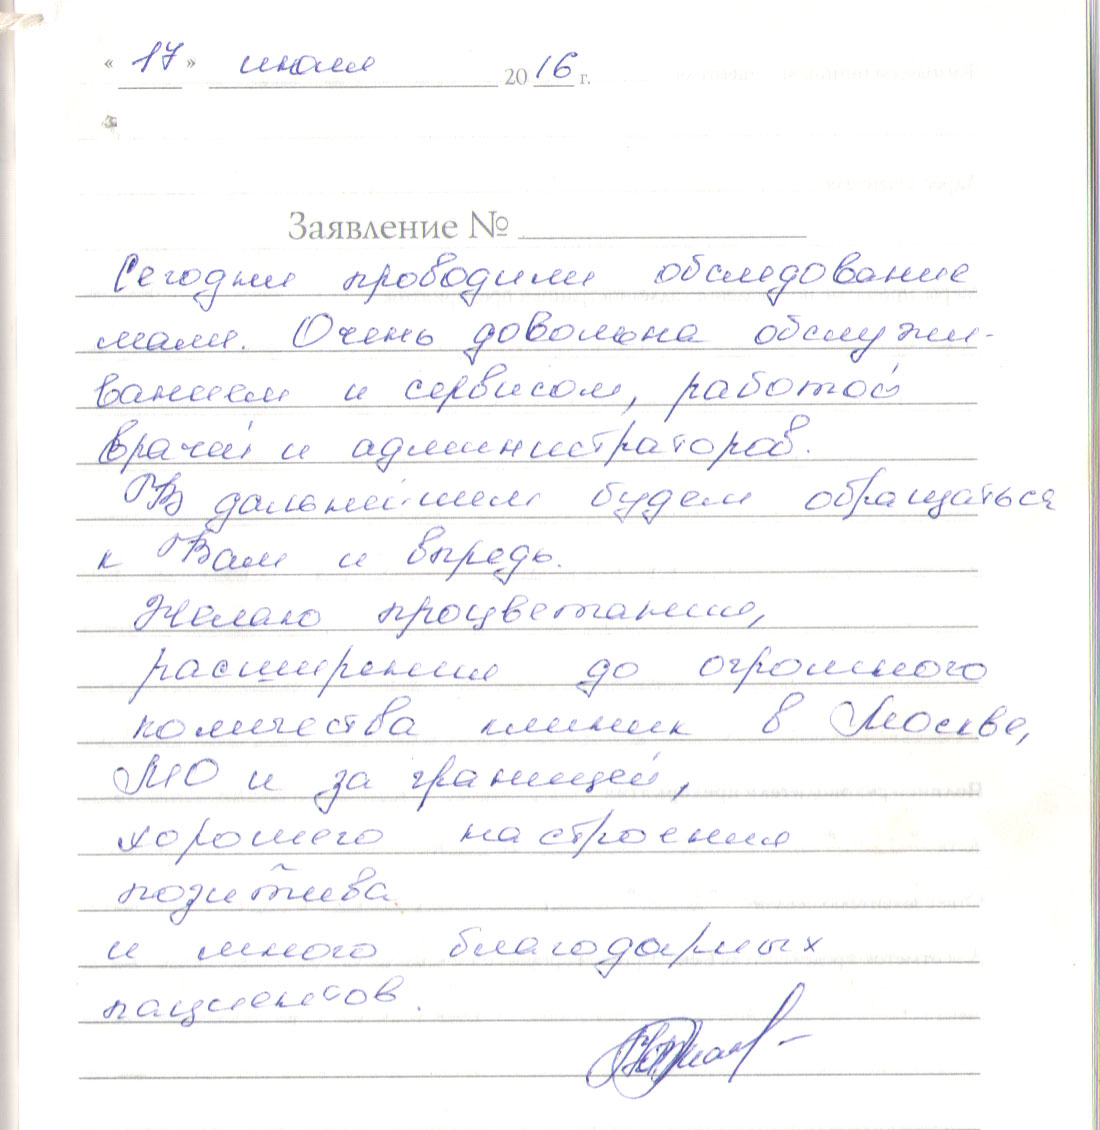 « 17 » июля 2016 г.
Заявление №
Сегодня проводили обследование
маме. Очень довольна обслужи-
ванием и сервисом, работой
врачей и администраторов.
В дальнейшем будем обращаться
к Вам и впредь.
Желаю процветания,
расширения до огромного
количества клиник в Москве,
МО и за границей,
хорошего настроения
позитива
и много благодарных
пациентов.